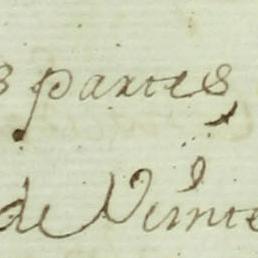 s partes,
de Veinte